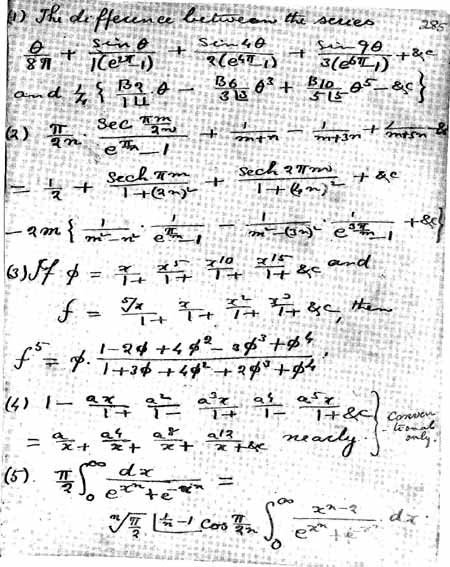 (1) The difference between the series 285
θ/8π + sin θ/1(e^{2π}-1) + sin 4θ/2(e^{4π}-1) + sin 9θ/3(e^{6π}-1) + &c
and 1/4 { B2/1⌊1 θ - B6/3⌊3 θ³ + B10/5⌊5 θ⁵ - &c }
(2) π/2n · sec πm/2n / e^{πm/n}-1 + 1/m+n - 1/m+3n + 1/m+5n - &
= 1/2 + sech πm/1+(2n)² + sech 2πm/1+(4n)² + &c
- 2m { 1/m²-n² · 1/e^{πm/n}-1 - 1/m²-(3n)² · 1/e^{3πm/n}-1 + &c }
(3) If φ = x/1+ x⁵/1+ x¹⁰/1+ x¹⁵/1+ &c and
f = ⁵√x/1+ x/1+ x²/1+ x³/1+ &c, then
f⁵ = φ. 1-2φ+4φ²-3φ³+φ⁴ / 1+3φ+4φ²+2φ³+φ⁴.
(4) 1 - ax/1+ a²/1- a³x/1+ a⁴/1- a⁵x/1+ &c } Conven
= a/x+ a⁴/x+ a⁸/x+ a¹²/x+ &c nearly. -tional only.
(5). π/2 ∫₀^∞ dx/e^{xⁿ}+e^{-xⁿ} =
ⁿ√π/2 ⌊1/n-1 cos π/2n ∫₀^∞ x^{n-2}/e^{xⁿ}+e^{-xⁿ} dx.